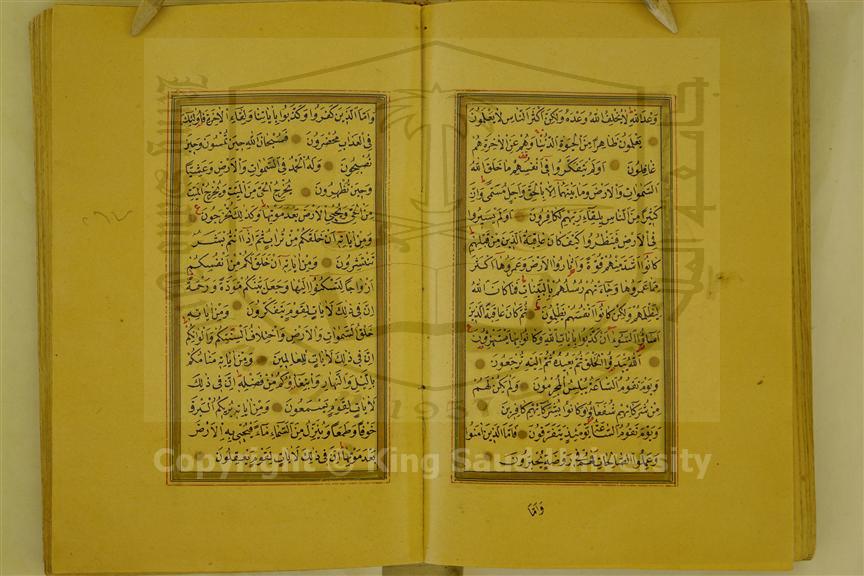 وعد الله لا يخلف الله وعده ولكن اكثر الناس لا يعلمون
يعلمون ظاهرا من الحيوة الدنيا وهم عن الاخرة هم
غافلون اولم يتفكروا فى انفسهم ما خلق الله
السموات والارض وما بينهما الا بالحق واجل مسمى وان
كثيرا من الناس بلقاء ربهم لكافرون اولم يسيروا
فى الارض فينظروا كيف كان عاقبة الذين من قبلهم
كانوا اشد منهم قوة واثاروا الارض وعمروها اكثر
مما عمروها وجاءتهم رسلهم بالبينات فما كان الله
ليظلمهم ولكن كانوا انفسهم يظلمون ثم كان عاقبة الذين
اساؤا السوء ان كذبوا بايات الله وكانوا بها يستهزؤن
الله يبدؤا الخلق ثم يعيده ثم اليه ترجعون
ويوم تقوم الساعة يبلس المجرمون ولم يكن لهم
من شركائهم شفعاؤا وكانوا بشركائهم كافرين
ويوم تقوم الساعة يومئذ يتفرقون فاما الذين امنوا
وعملوا الصالحات فهم فى روضة يحبرون
واما
واما الذين كفروا وكذبوا باياتنا ولقاء الاخرة فاولئك
فى العذاب محضرون فسبحان الله حين تمسون وحين
تصبحون وله الحمد فى السموات والارض وعشيا
وحين تظهرون يخرج الحى من الميت ويخرج الميت
من الحى ويحيى الارض بعد موتها وكذلك تخرجون
ومن اياته ان خلقكم من تراب ثم اذا انتم بشر
تنتشرون ومن اياته ان خلق لكم من انفسكم
ازواجا لتسكنوا اليها وجعل بينكم مودة ورحمة
ان فى ذلك لايات لقوم يتفكرون ومن اياته
خلق السموات والارض واختلاف السنتكم والوانكم
ان فى ذلك لايات للعالمين ومن اياته منامكم
بالليل والنهار وابتغاؤكم من فضله ان فى ذلك
لايات لقوم يسمعون ومن اياته يريكم البرق
خوفا وطمعا وينزل من السماء ماء فيحيى به الارض
بعد موتها ان فى ذلك لايات لقوم يعقلون
Copyright © King Saud University
1957